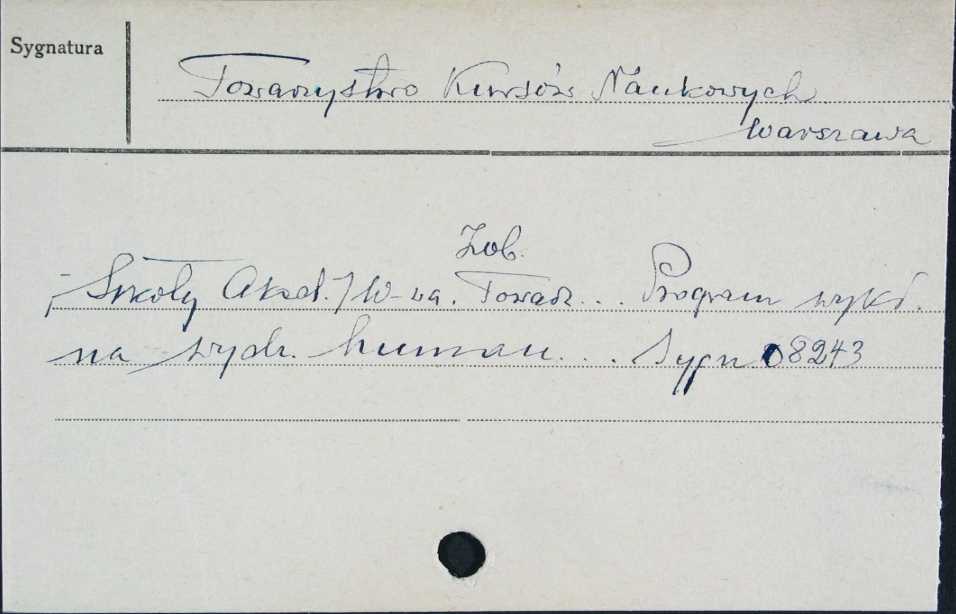 Sygnatura
Towarzystwo Kursów Naukowych
Warszawa
Zob.
Szkoły Akad. / W-wa. Towarz... Program wykł.
na wydz. human... Sygn. 08243